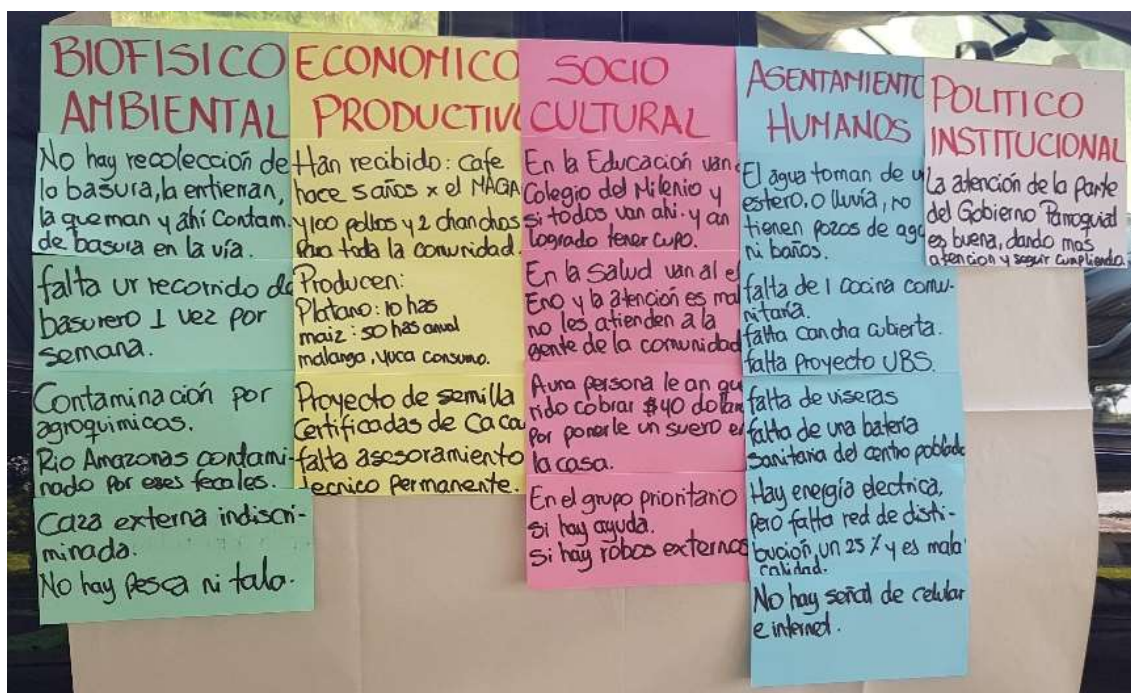 BIOFISICO
AMBIENTAL
No hay recolección de
la basura, la entierran,
la queman y ahí Contam.
de basura en la vía.
falta un recorrido de
basurero 1 vez por
semana.
Contaminación por
agroquimicos.
Rio Amazonas contami-
nado por eses fecales.
Caza externa indiscri-
minada.
No hay pesca ni tala.
ECONOMICO
PRODUCTIVO
Han recibido: cafe
hace 5 años x el MAGA
y 100 pollos y 2 chanchos
para toda la comunidad.
Producen:
Platano: 10 has
maiz: 50 has anual
malanga, yuca consumo.
Proyecto de semilla
Certificadas de Caca
falta asesoramiento
tecnico permanente.
SOCIO
CULTURAL
En la Educación van
Colegio del Milenio y
si todos van ahi. y an
logrado tener cupo.
En la Salud van al
Eno y la atención es mal
no les atienden a la
gente de la comunidad
A una persona le an que
rido cobrar $40 dolar
por ponerle un suero en
la casa.
En el grupo prioritario
si hay ayuda.
Si hay robos externos
ASENTAMIENTO
HUMANOS
El agua toman de u
estero, o lluvia, no
tienen pozos de agu
ni baños.
falta de 1 cocina comu-
nitaría.
falta cancha cubierta.
falta Proyecto UBS.
falta de viseras
falta de una batería
Sanitaria del centro poblado
Hay energía electrica,
pero falta red de distri-
bución, un 25 % y es mala
calidad.
No hay señal de celular
e internet.
POLITICO
INSTITUCIONAL
La atención de la parte
del Gobierno Parroquial
es buena, dando mas
atencion y seguir cumpliendo.